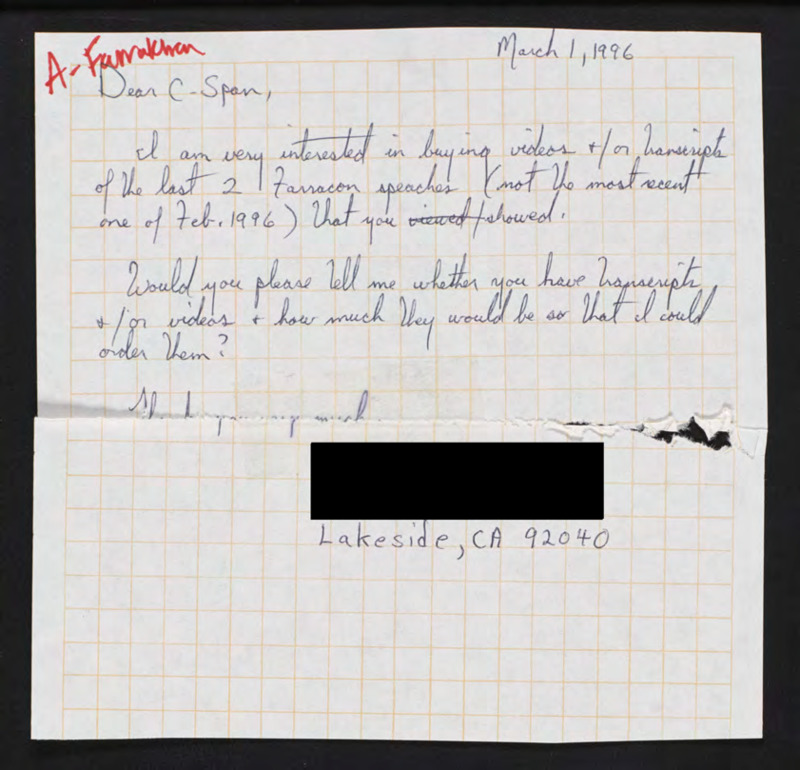 A-Farrakhan
March 1, 1996
Dear C-Span,
I am very interested in buying videos +/or transcripts
of the last 2 Farracon speaches (not the most recent
one of Feb. 1996) that you viewed/showed.
Would you please tell me whether you have transcripts
+/or videos + how much they would be so that I could
order them?
Thank you very much
Lakeside, CA 92040